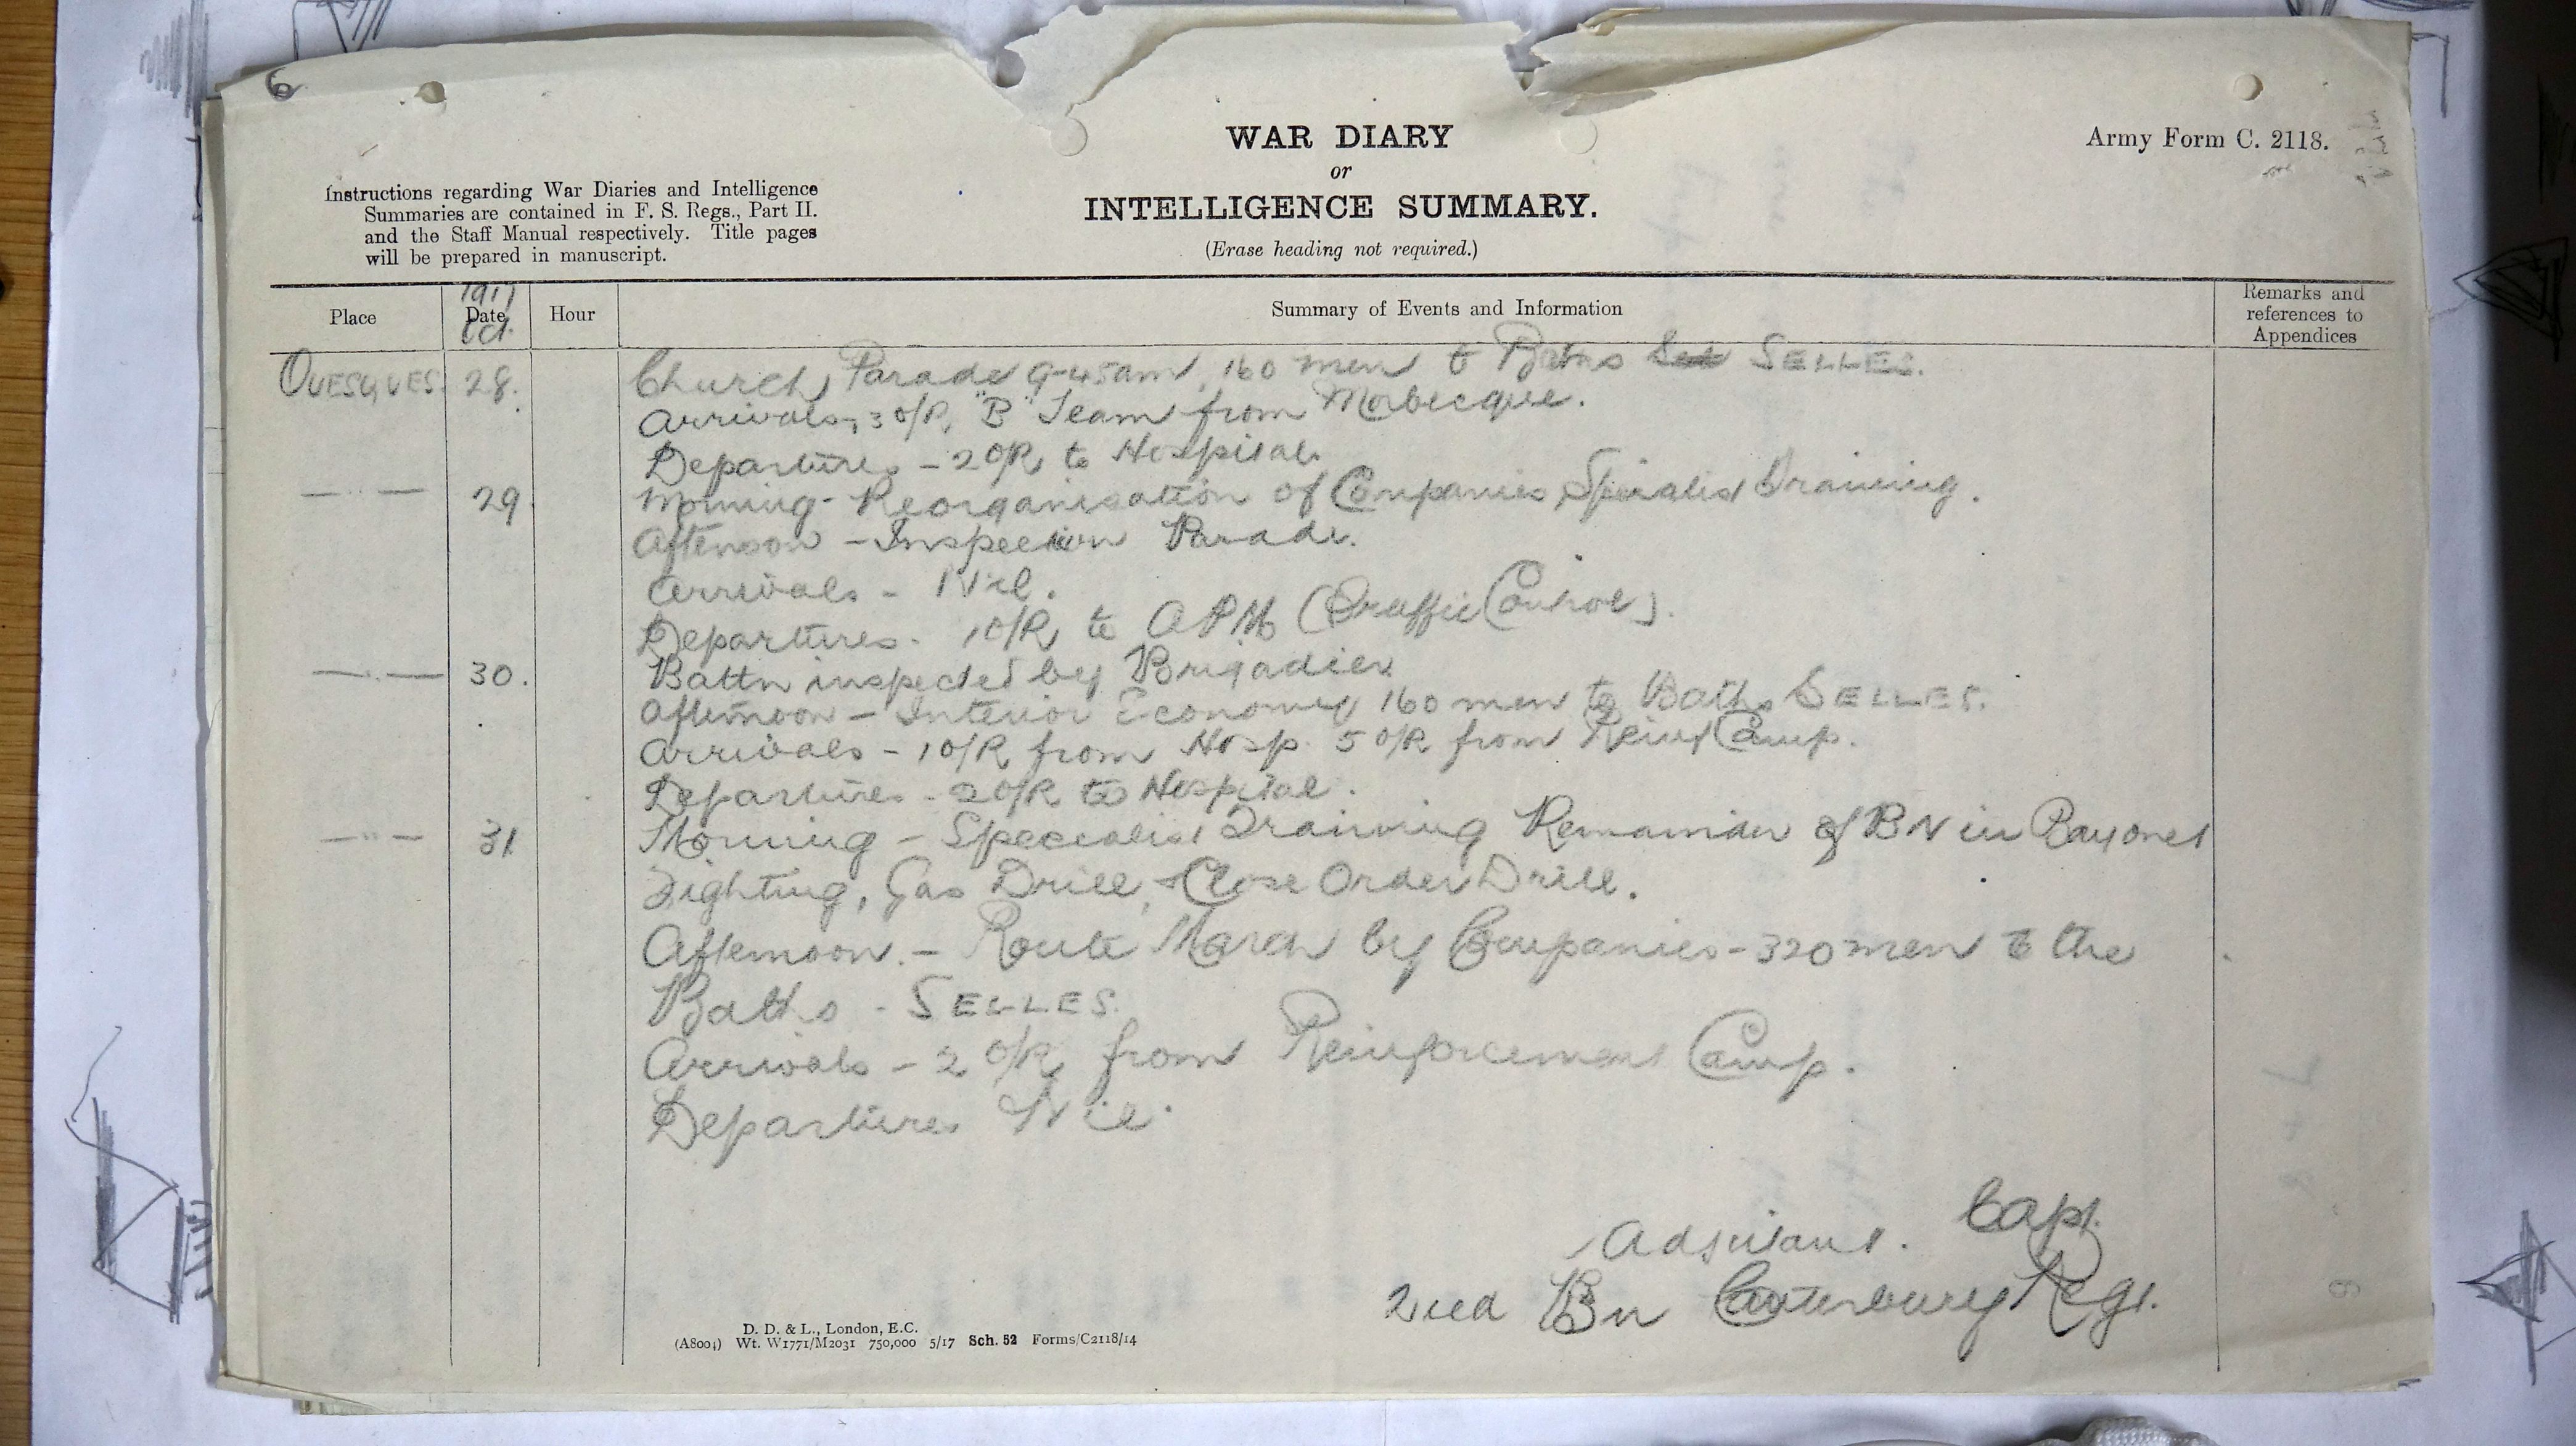 6
WAR DIARY
or
INTELLIGENCE SUMMARY.
(Erase heading not required.)
Army Form C. 2118.
Instructions regarding War Diaries and Intelligence
Summaries are contained in F. S. Regs., Part II.
and the Staff Manual respectively. Title pages
will be prepared in manuscript.
Place
1917
Date
Oct.
Hour
Summary of Events and Information
Remarks and
references to
Appendices
QUESQUES 28. Church Parade 9-45am, 160 men to Baths SELLES.
Arrivals, 3 O/R, "B" Team from Morbecque.
Departures - 2 O/R to Hospital.
—"— 29. Morning - Reorganisation of Companies, Specialist Training.
Afternoon - Inspection Parade.
Arrivals - Nil.
Departures - 1 O/R to APM (Traffic Control).
—"— 30. Battn inspected by Brigadier
Afternoon - Interior Economy 160 men to Baths SELLES.
Arrivals - 1 O/R from Hosp. 5 O/R from Reinf Camp.
Departures - 2 O/R to Hospital.
—"— 31. Morning - Specialist Training Remainder of BN in Bayonet
Fighting, Gas Drill, Close Order Drill.
Afternoon. - Route March by Companies - 320 men to the
Baths - SELLES.
Arrivals - 2 O/R from Reinforcement Camp.
Departures Nil.
Capt.
Adjutant.
2nd Bn Canterbury Regt.
D. D. & L., London, E.C.
(A8004) Wt. W1771/M2031 750,000 5/17 Sch. 52 Forms/C2118/14